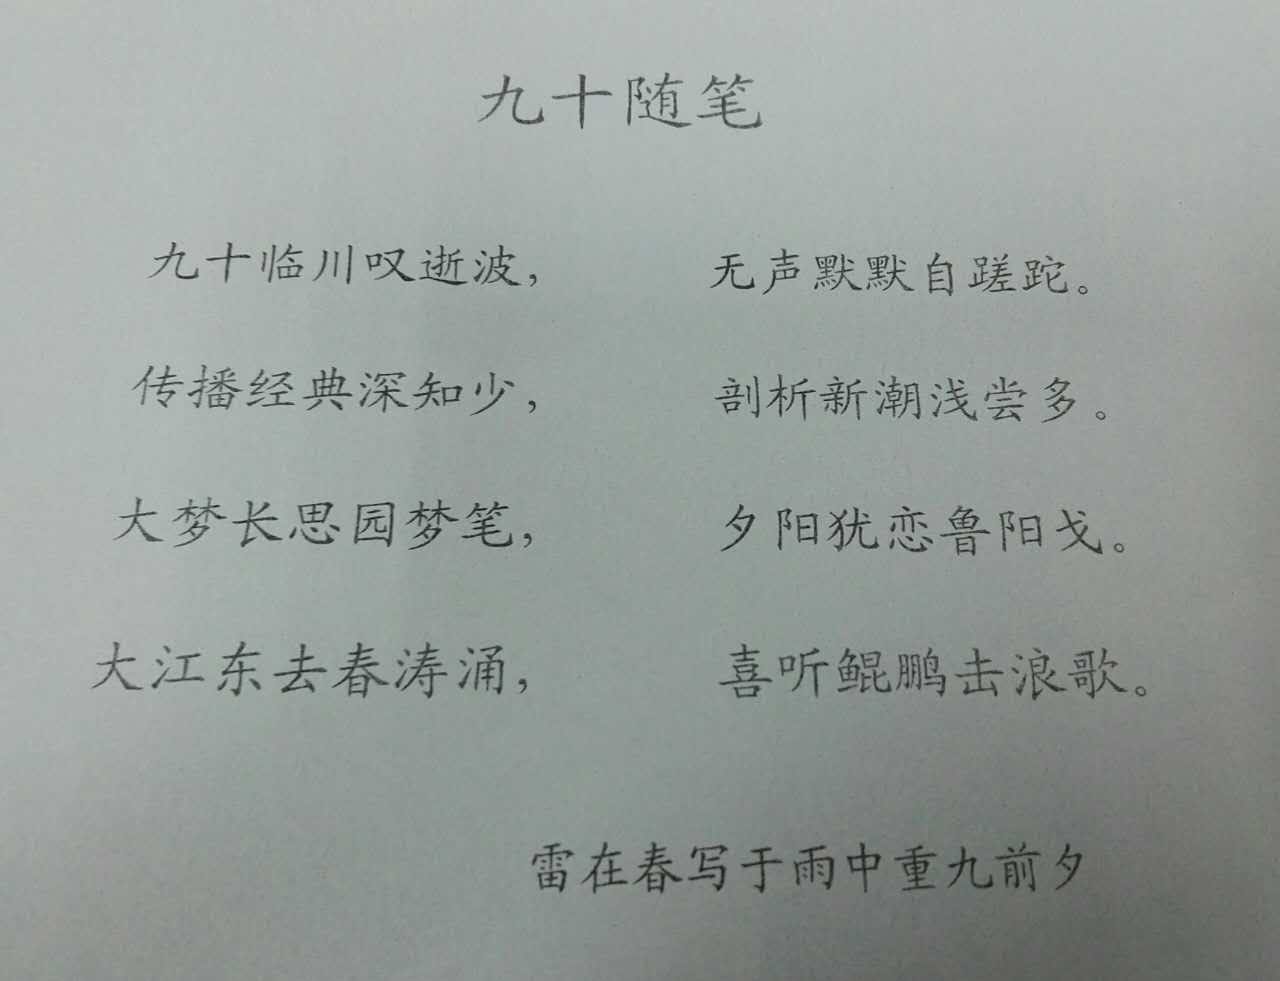 九十随笔
九十临川叹逝波， 无声默默自蹉跎。
传播经典深知少， 剖析新潮浅尝多。
大梦长思园梦笔， 夕阳犹恋鲁阳戈。
大江东去春涛涌， 喜听鲲鹏击浪歌。
雷在春写于雨中重九前夕